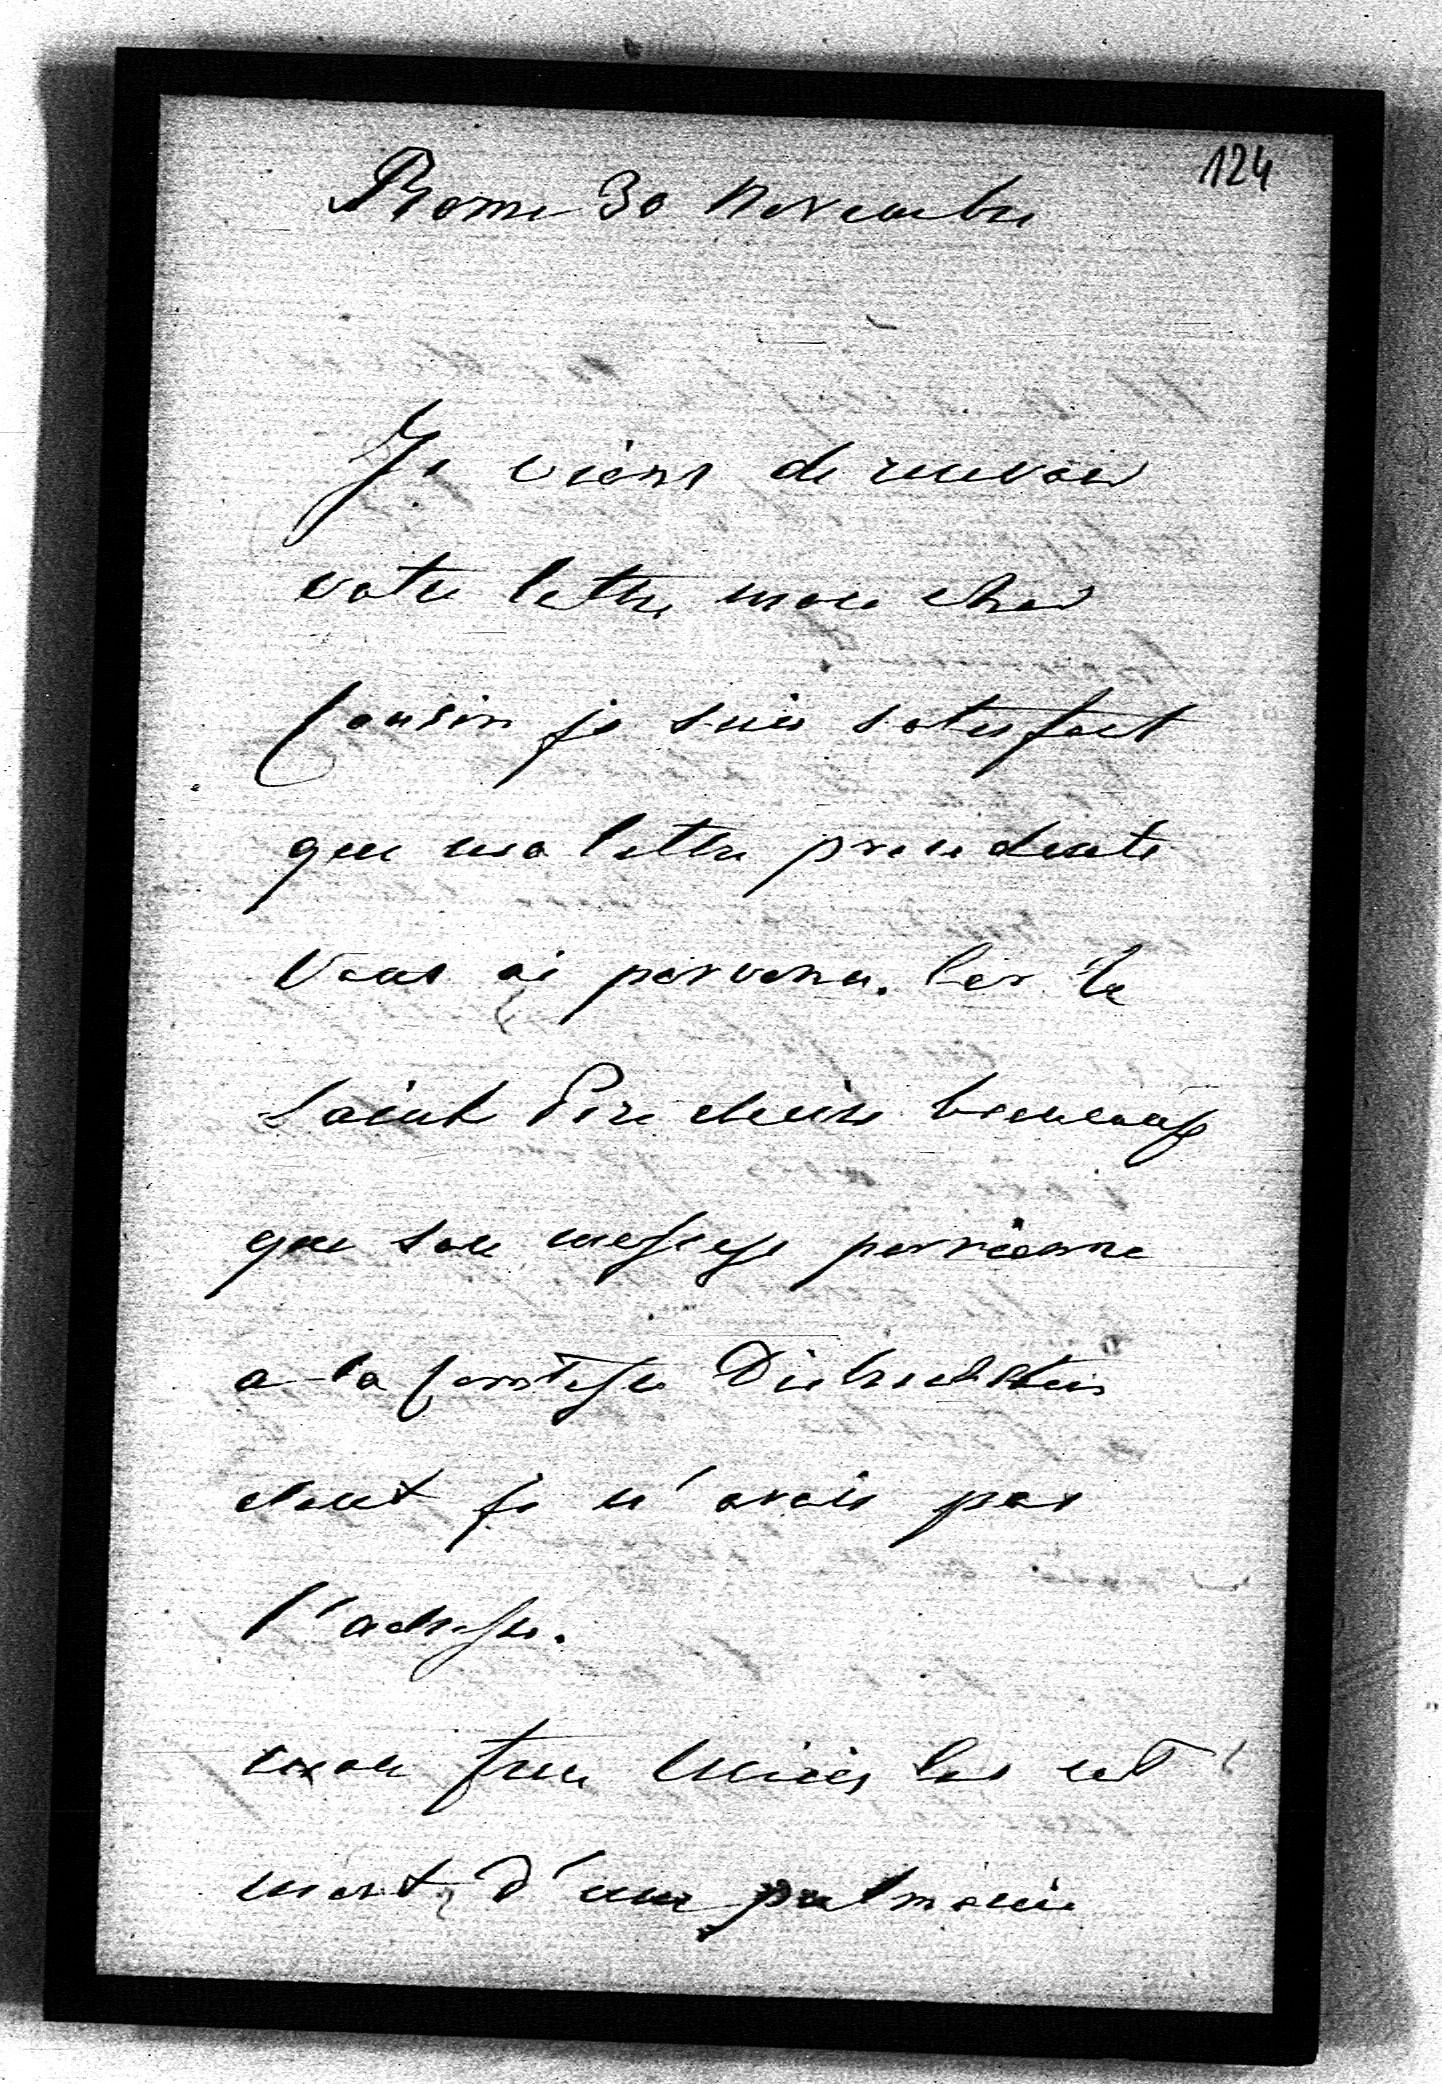 124
Rome 30 Novembre
Je viens de recevoir
votre lettre mon cher
Cousin je suis satisfait
que ma lettre precedente
vous ai parvenu. Car le
Saint Pere desire beaucoup
que son message parvienne
a la Comtesse
dont je n'avais pas
l'adresse.
mon frere est
mort d'une pulmonie